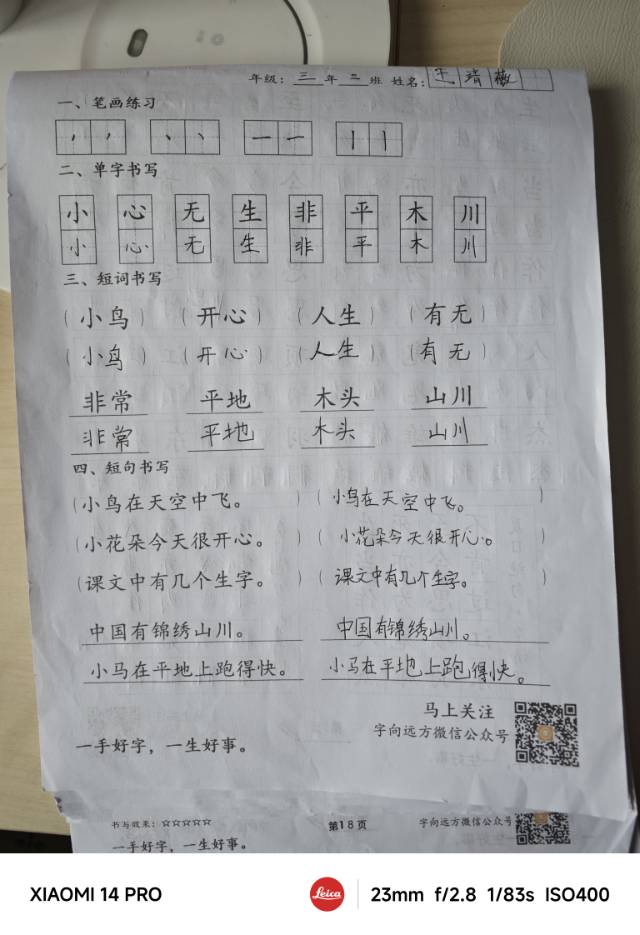 年级：三年二班 姓名：王靖
一、笔画练习
二、单字书写
小 心 无 生 非 平 木 川
小 心 无 生 非 平 木 川
三、短词书写
（小鸟）（开心）（人生）（有无）
（小鸟）（开心）（人生）（有无）
非常 平地 木头 山川
非常 平地 木头 山川
四、短句书写
（小鸟在天空中飞。）（小鸟在天空中飞。）
（小花朵今天很开心。）（小花朵今天很开心。）
（课文中有几个生字。）（课文中有几个生字。）
中国有锦绣山川。 中国有锦绣山川。
小马在平地上跑得快。 小马在平地上跑得快。
马上关注
字向远方微信公众号
一手好字，一生好事。
书写效果：☆☆☆☆☆ 第18页 字向远方微信公众号
一手好字，一生好事。
XIAOMI 14 PRO Leica 23mm f/2.8 1/83s ISO400